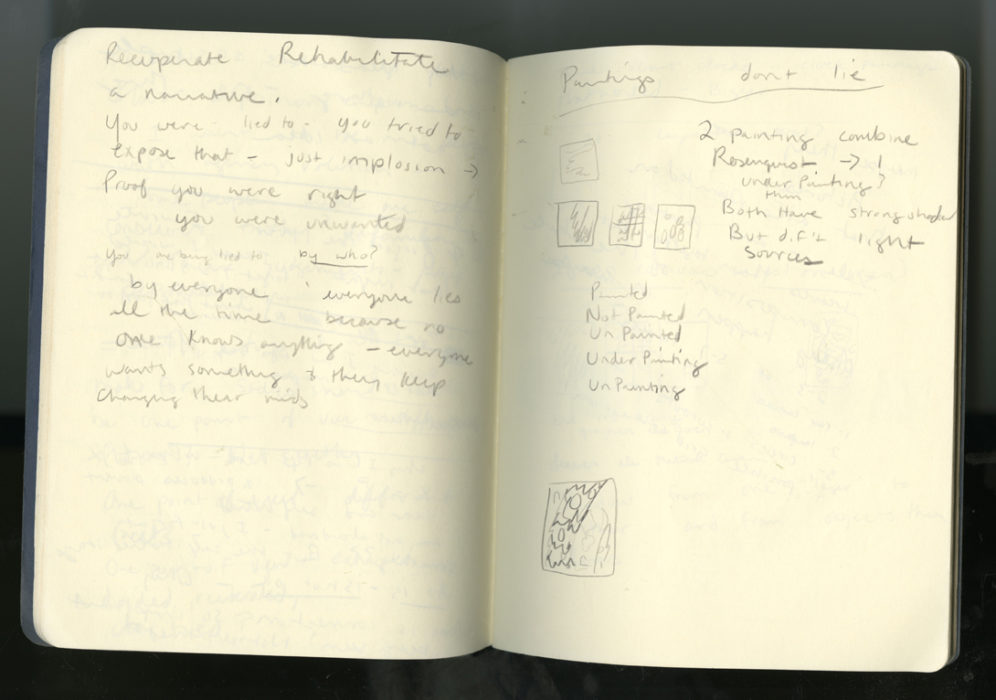 Recuperate Rehabilitate
a narrative.
You were lied to - you tried to
expose that - just implosion →
Proof you were right
you were unwanted
You are being lied to by who?
by everyone everyone lies
all the time because no
one knows anything - everyone
wants something & they keep
changing their minds
Paintings don't lie
2 painting combine
Rosenquist → 1
under Painting?
then
Both Have strong shadow
But dif't light
sources
Painted
Not Painted
Un Painted
Under Painting
Un Painting